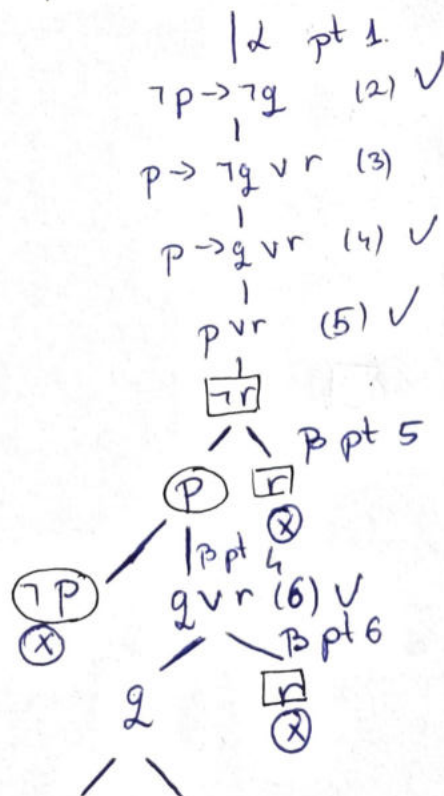 α pt 1.
¬p→¬q (2) ✓
p→ ¬q v r (3)
p→q v r (4) ✓
p v r (5) ✓
¬r
β pt 5
p r
x
β pt 4
¬p q v r (6) ✓
x β pt 6
q r
x